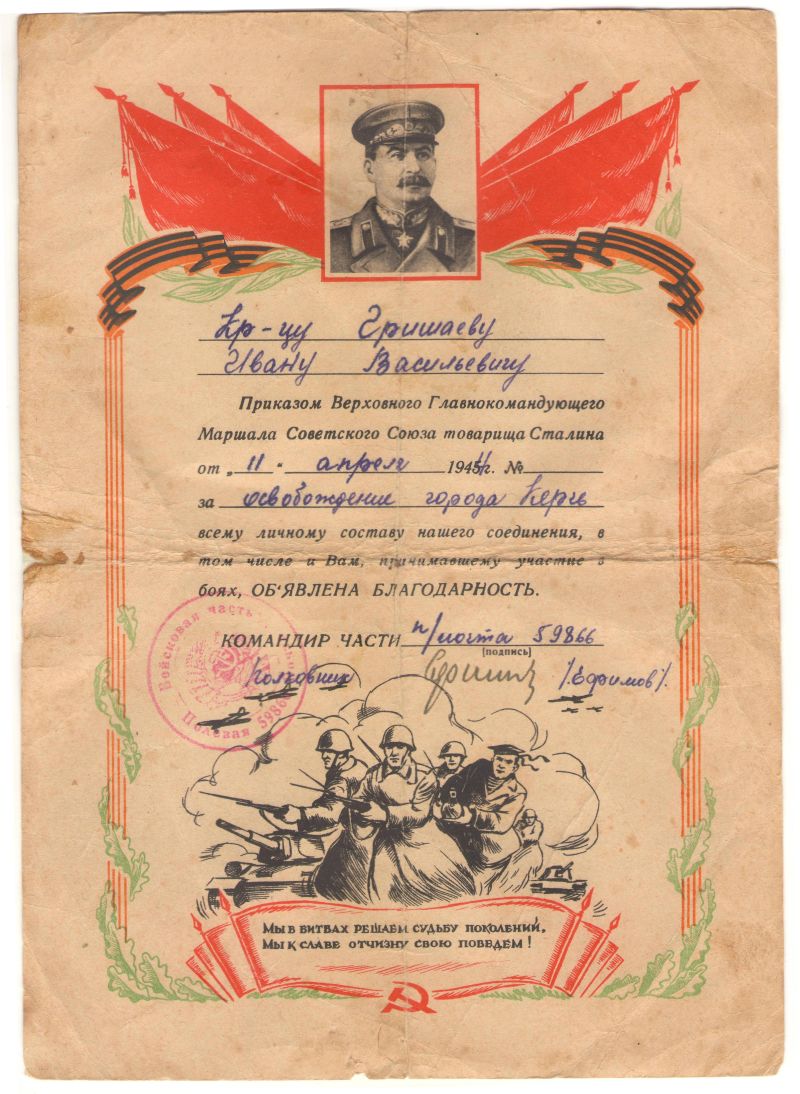 Кр-цу Гришаеву
Ивану Васильевичу
Приказом Верховного Главнокомандующего
Маршала Советского Союза товарища Сталина
от „11" апреля 1944г. №
за освобождение города Керчь
всему личному составу нашего соединения, в
том числе и Вам, принимавшему участие в
боях, ОБ'ЯВЛЕНА БЛАГОДАРНОСТЬ.
КОМАНДИР ЧАСТИ п/почта 59866
[подпись]
Полковник /Ефимов/.
Войсковая часть
Полевая 59866
МЫ В БИТВАХ РЕШАЕМ СУДЬБУ ПОКОЛЕНИЙ,
МЫ К СЛАВЕ ОТЧИЗНУ СВОЮ ПОВЕДЕМ!